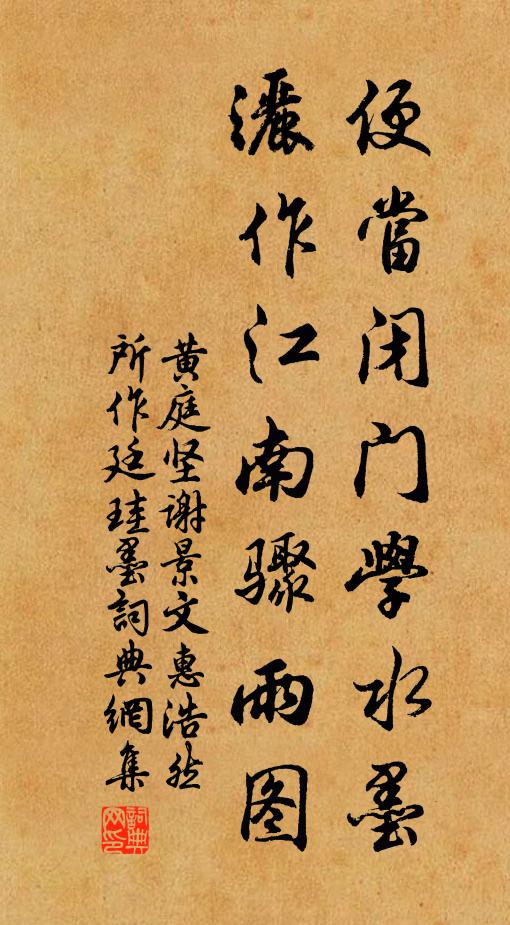 便當闭门學水墨
灑作江南驟雨图
黄庭坚谢景文惠浩然
所作廷珪墨詞典網集
詞典
网印